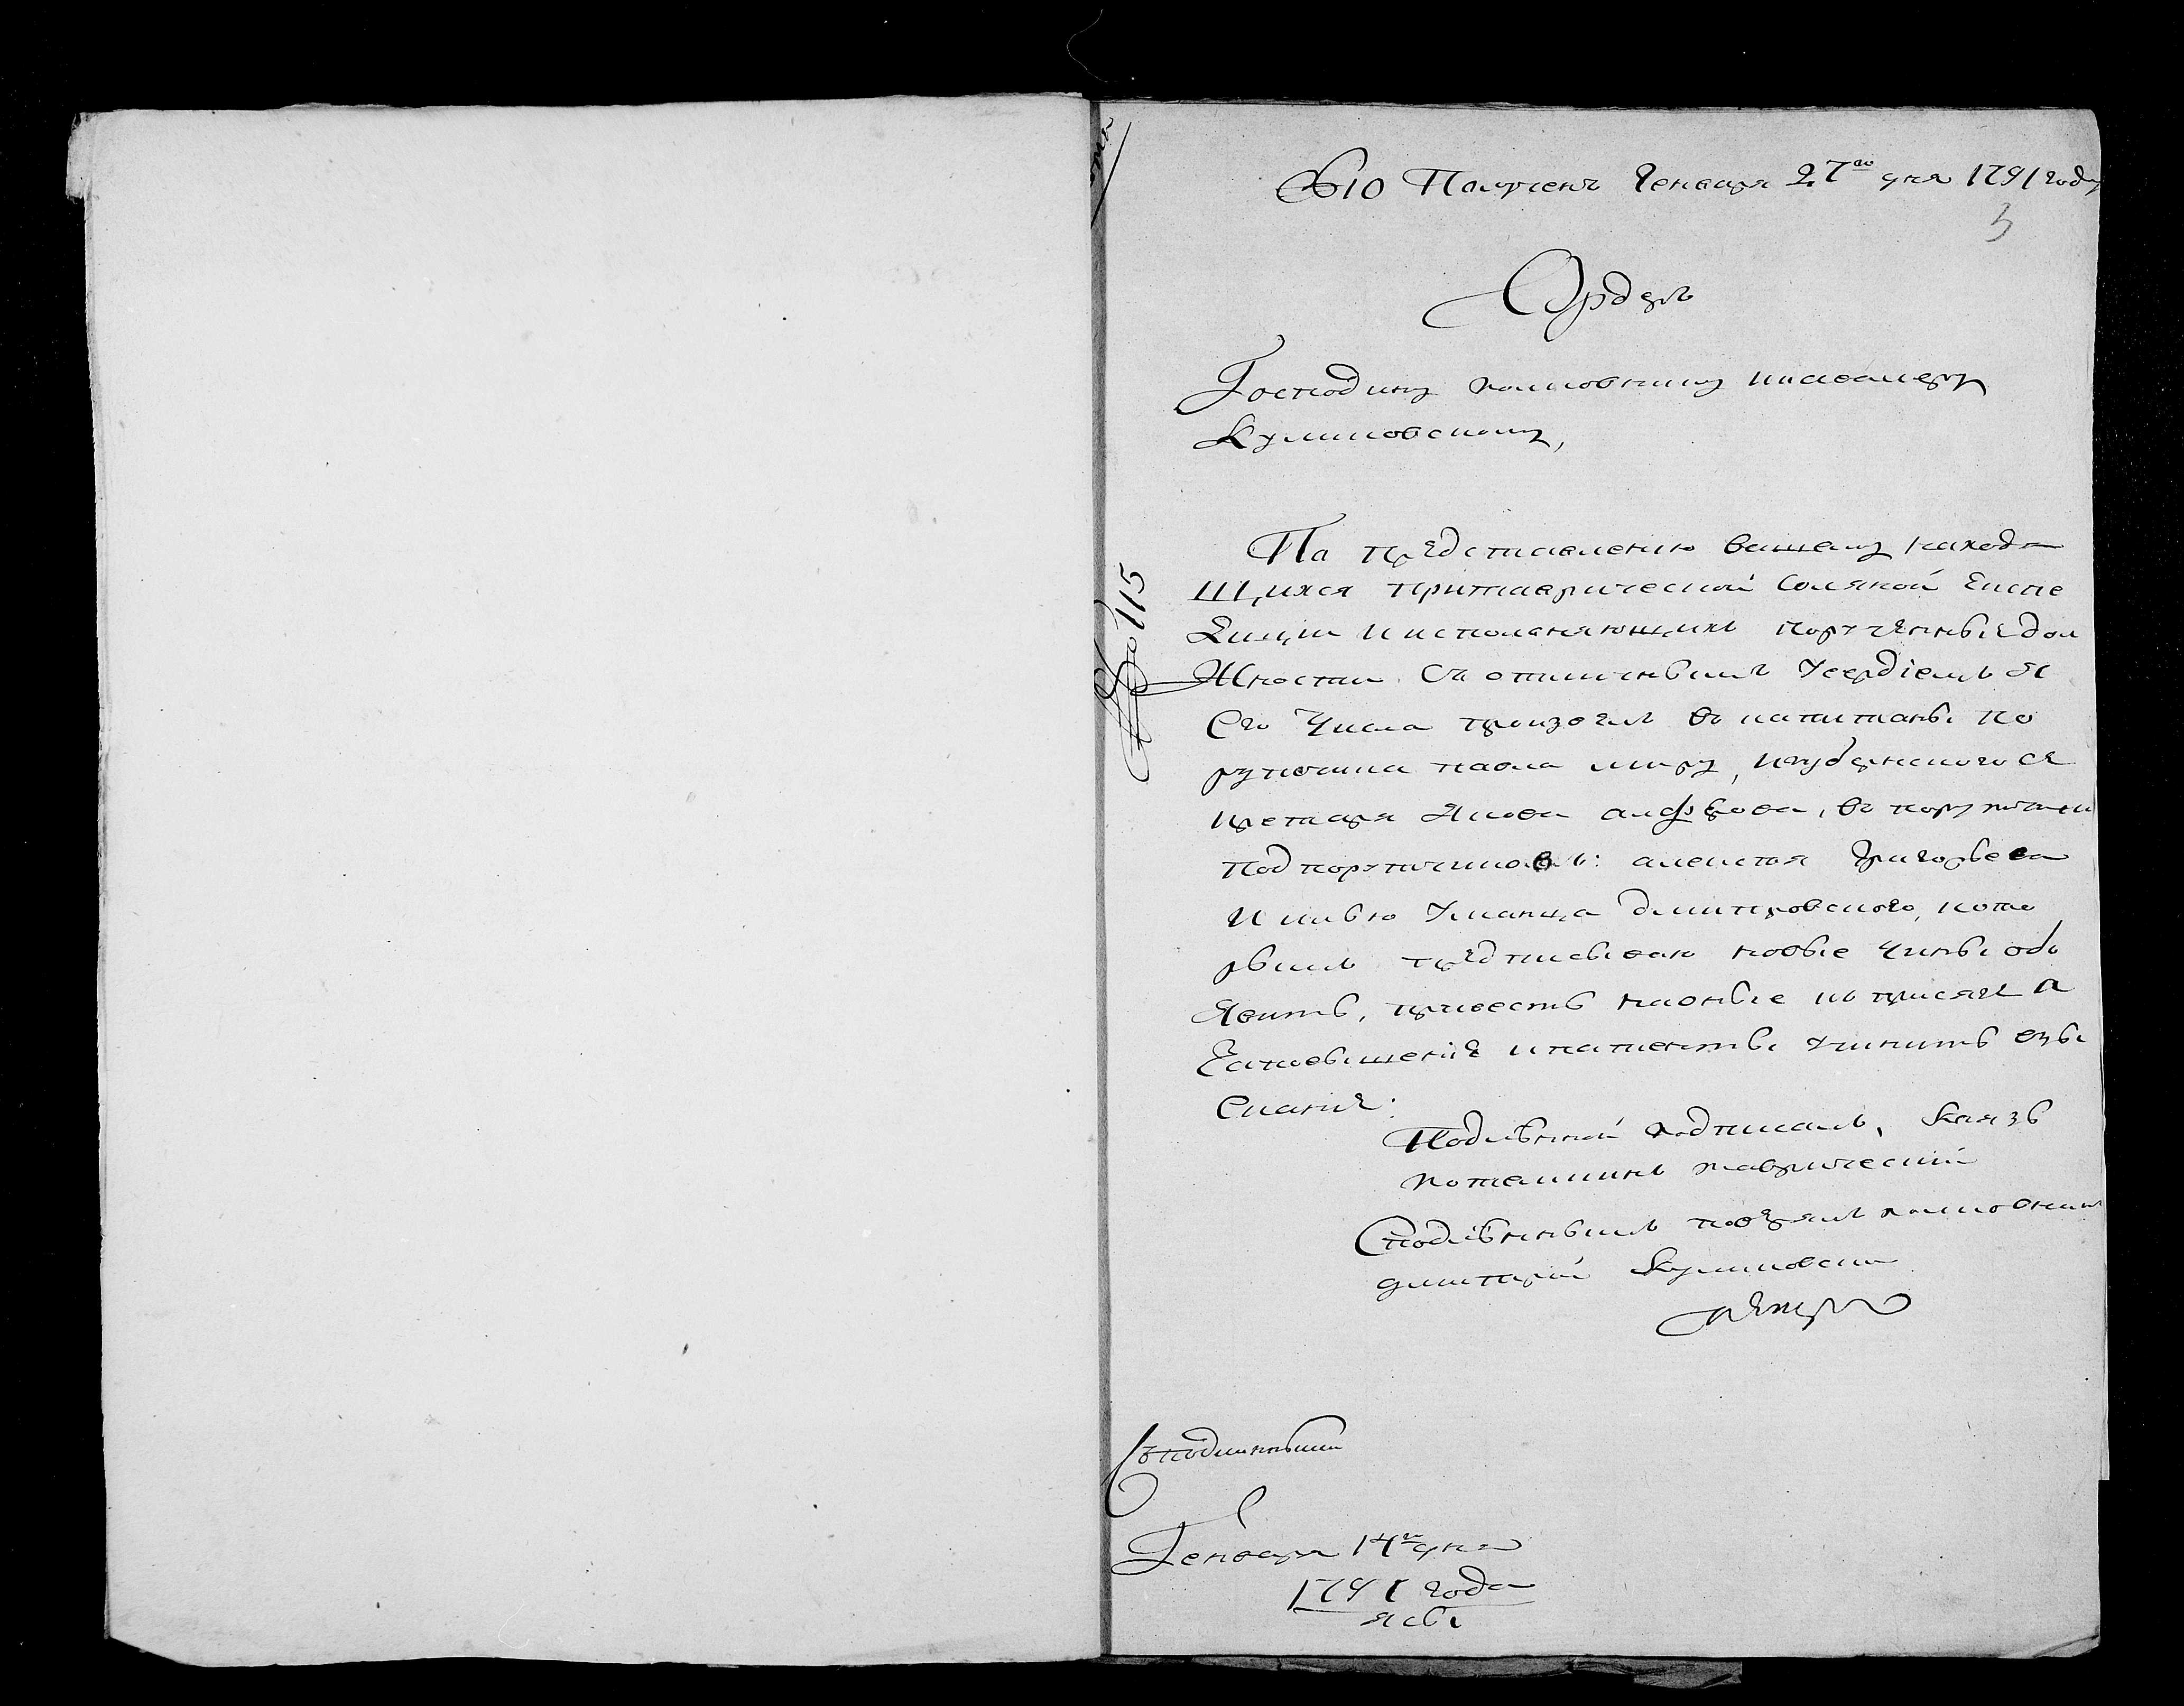 № 10 Получен Генваря 27го дня 1791 году
5
Ордеръ
Господину полковнику и кавалеру
Куликовскому,
По представлению вашему находя
щихся при таврической соляной Экспе
диции и исполняющихъ порученные дол
жности съ отличнымъ усердіемъ
сего числа произвелъ въ капитаны по
рутчика павла мируу, и губернского се
кретаря Якова алфіорова, въ порутчики
подпорутчиковъ: алексея Григорьева
и илью Уманца дмитровского, кото
рымъ предписываю новые чины объ
явить, привесть на оные къ присяге а
за повышение и патенты учинить взы
скание.
Подлинной подписалъ, Князь
потемкинъ таврический
С подлиннымъ поверялъ полковник
дмитрий Куликовски
№ 115
Съ подлинным
Генваря 14го дня
1791 года
яссы